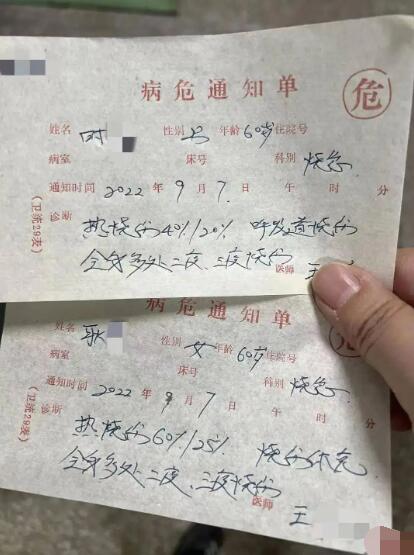 病危通知单
危
姓名 时 性别 女 年龄 60岁 住院号
病室 床号 科别 烧急
通知时间 2022 年 9 月 7 日 午 时 分
诊断
热烧伤40%/20% 呼吸道烧伤
全身多处二度、三度烧伤
医师 王
(卫统29表)
病危通知单
危
姓名 耿 性别 女 年龄 60岁 住院号
病室 床号 科别 烧急
通知时间 2022 年 9 月 7 日 午 时 分
诊断
热烧伤60%/25% 烧伤休克
全身多处二度、三度烧伤
医师 王
(卫统29表)